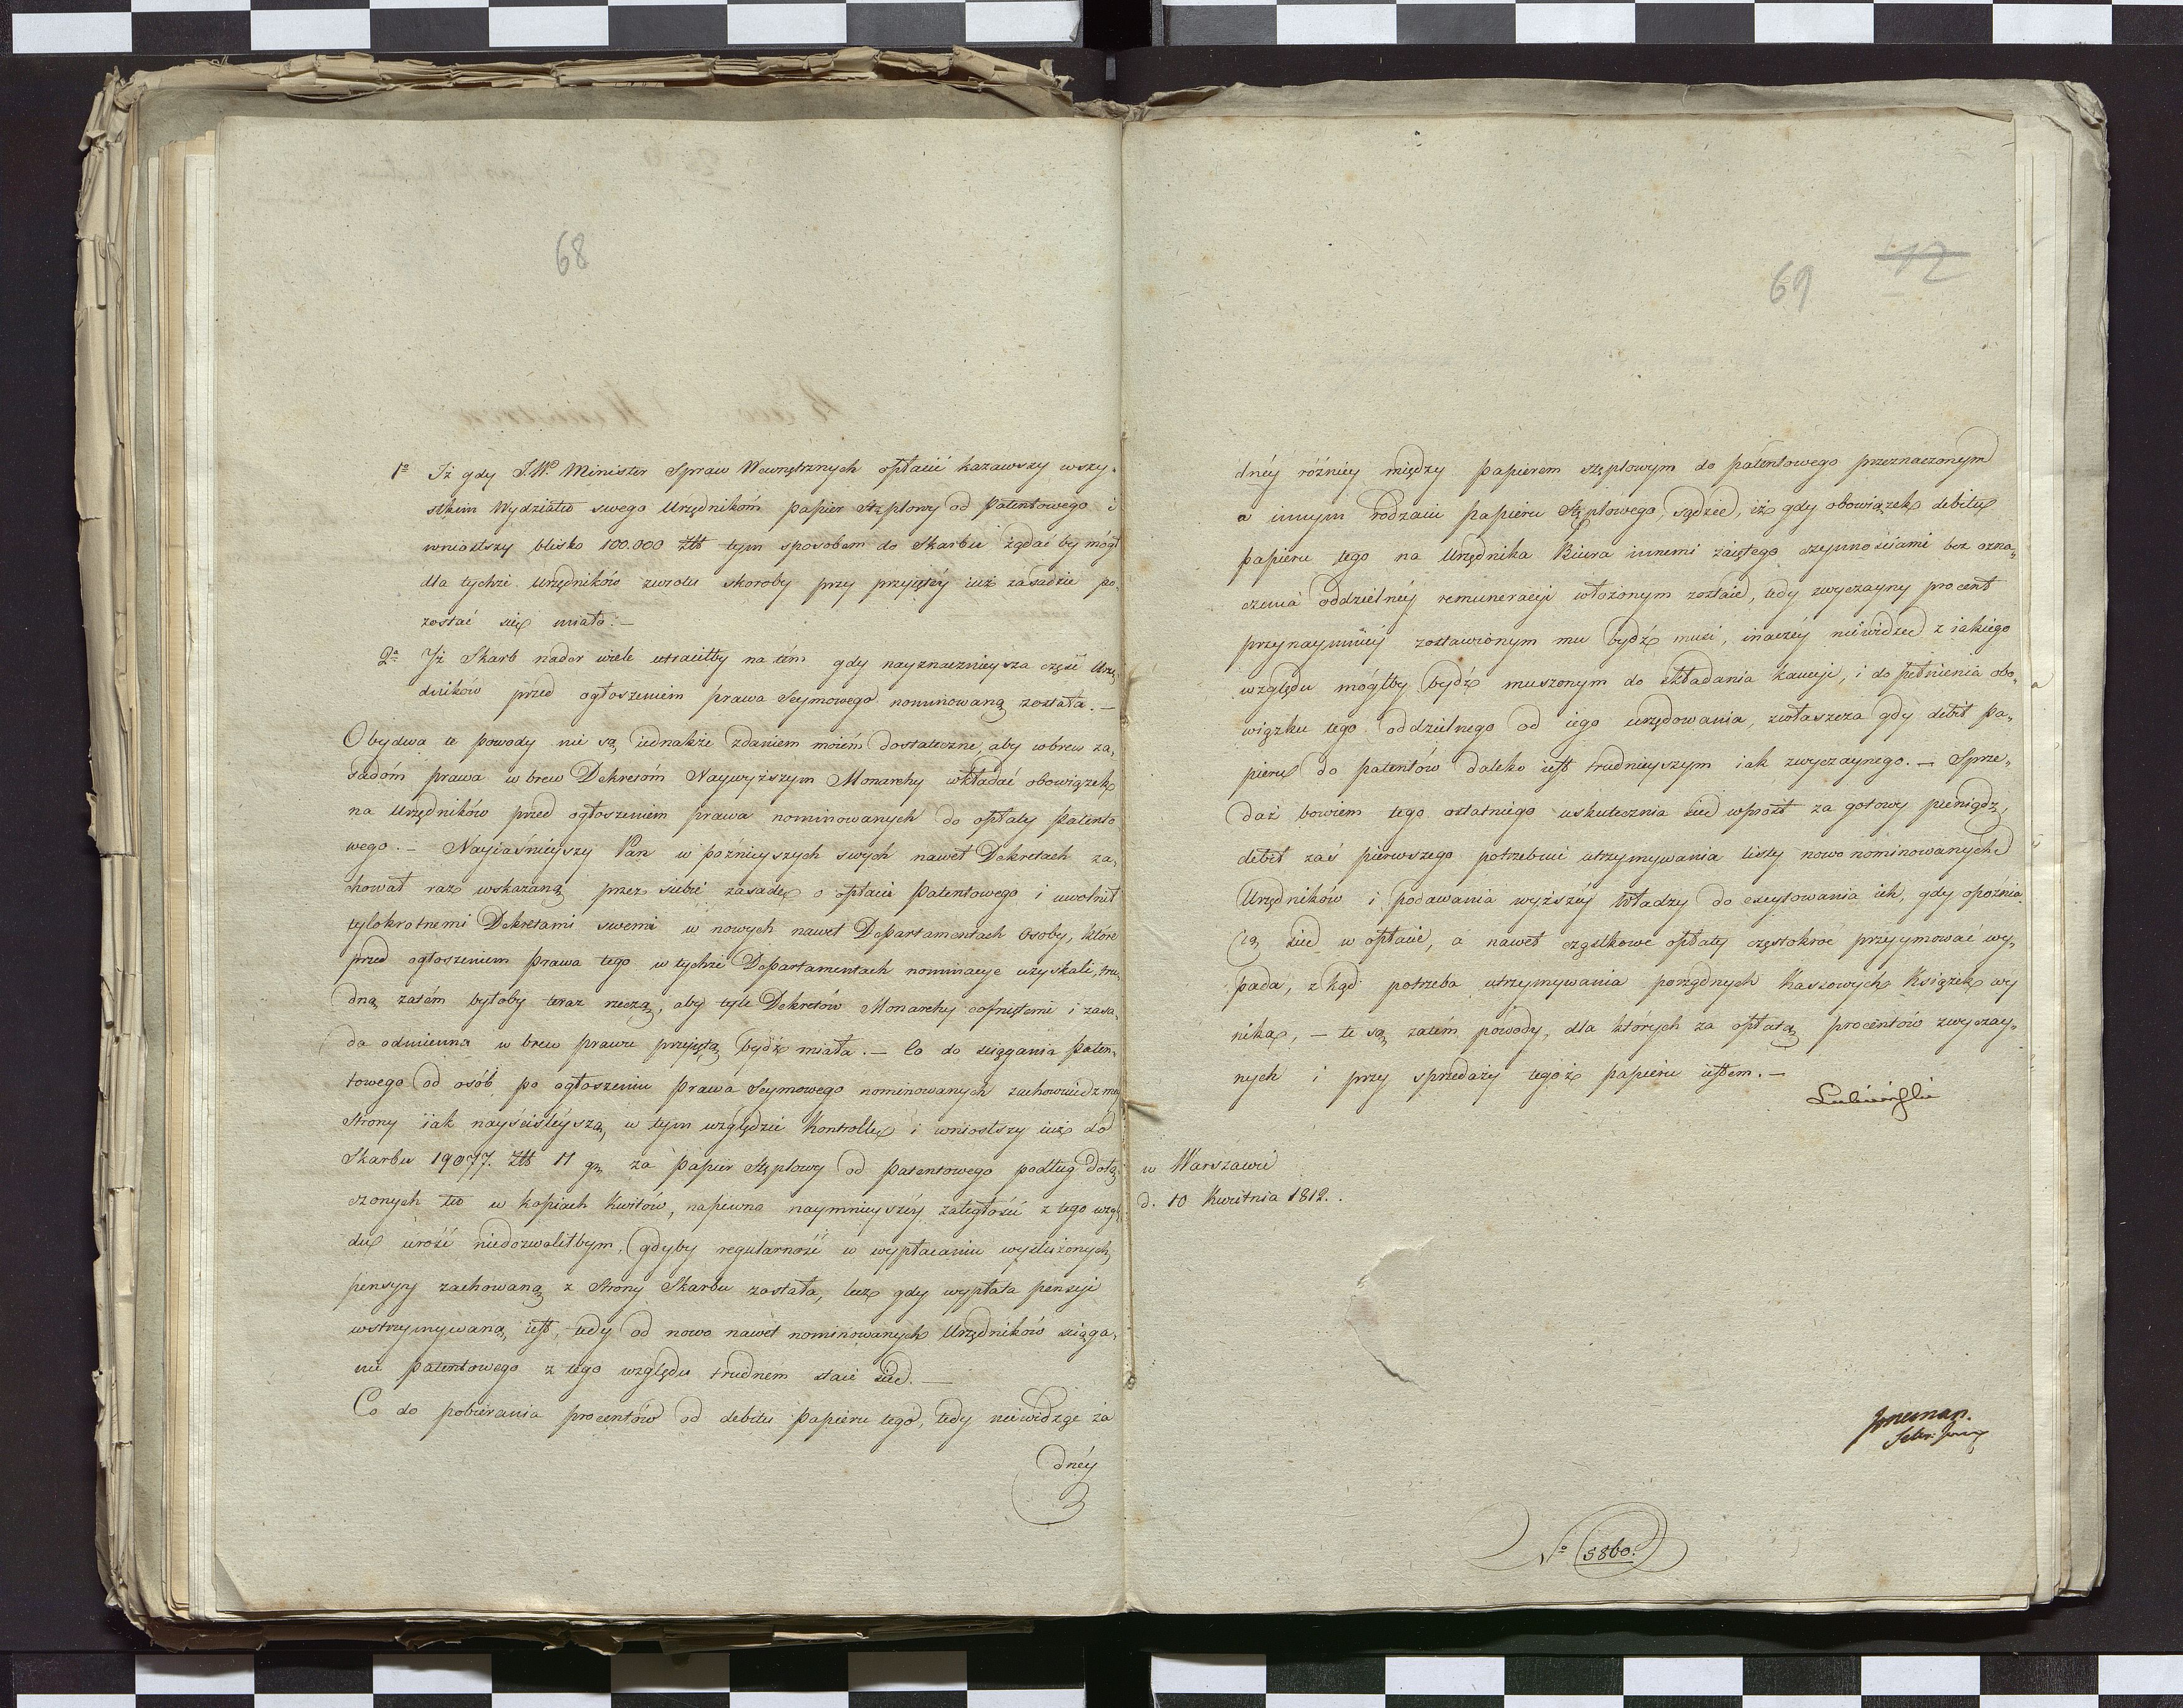 68
1º Iż gdy J.W. Minister Spraw Wewnętrznych opłacić kazawszy wszy„
stkim Wydziału swego Urzędnikóm papier Stęplowy od Patentowego i
wniosłszy blisko 100.000 Złł tym sposobem do Skarbu żądać by mógł
dla tychże Urzędników zwrotu skoroby przy przyjętéy iuż zasadzie po„
zostać się miało. —
2º Iż Skarb nader wiele utraciłby na tém gdy nayznacznieysza część Urzę„
dników przed ogłoszeniem prawa Seymowego nominowaną została. —
Obydwa te powody nie są iednakże zdaniem moiém dostateczne, aby wbrew za„
sadóm prawa w brew Dekretóm Naywyższym Monarchy wkładać obowiązek
na Urzędników przed ogłoszeniem prawa nominowanych do opłaty Patento
wego. — Nayiaśnieyszy Pan w poźnieyszych swych nawet Dekretach za„
chował raz wskazaną przez siebie zasadę o opłacie Patentowego i uwolnił
tylokrotnemi Dekretami swemi w nowych nawet Departamentach Osoby, które
przed ogłoszeniem Prawa tego w tychże Departamentach nominacye uzyskali, tru„
dną zatém byłoby teraz rzeczą, aby tyle Dekretów Monarchy cofniętemi i zasa„
da odmienna w brew prawu przyjętą bydź miała. — Co do ściągania Paten„
towego od osób po ogłoszeniu Prawa Seymowego nominowanych zachowuię z mey
Strony iak nayściśleyszą w tym względzie Kontrollę i wniosłszy iuż do
Skarbu 19077. Złł 11 gr za papier Stęplowy od Patentowego podług dołą„
czonych tu w kopiach Kwitów, napewno naymnieyszéy zaległości z tego wzglę„
du urość niedozwoliłbym, gdyby regularność w wypłacaniu wysłużonych
pensyy zachowaną z Strony Skarbu została, lecz gdy wypłata pensyi
wstrzymywaną iest, tedy od nowo nawet nominowanych Urzędników ściąga„
nie Patentowego z tego względu trudnem staie się. —
Co do pobierania procentów od debitu papieru tego, tedy niewidząc ża
dnéy
69
12
dnéy różnicy między papierem stęplowym do patentowego przeznaczonym
a innym rodzaiu papieru Stęplowego, sądzę, iż gdy obowiązek debitu
papieru tego na Urzędnika Biura innemi zaiętego czynnościami bez ozna„
czenia oddzielnéy remuneracyi włożonym zostaie, tedy zwyczayny procent
przynaymniéy zostawionym mu bydź musi, inaczéy niewidzę z iakiego
względu mógłby bydź muszonym do składania kaucyi, i do pełnienia obo„
wiązku tego oddzielnego od iego urzędowania, zwłaszcza gdy debit pa„
pieru do patentów daleko iest trudnieyszym iak zwyczaynego. — Sprze„
daż bowiem tego ostatniego uskutecznia się wprost za gotowy pieniądz,
debit zaś pierwszego potrzebuie utrzymywania listy nowo nominowanych
Urzędników i podawania wyższéy Władzy do exeytowania ich, gdy opoźnia
ią się w opłacie, a nawet cząstkowe opłaty częstokroć przyymować wy„
pada, z kąd potrzeba utrzymywania porządnych Kassowych Książek wy
nika, — te są zatém powody, dla których za opłatą procentów zwyczay„
nych i przy sprzedaży tegoż papieru iestem. —
Łubieński
w Warszawie
d. 10 Kwietnia 1812.
Nº 5860.